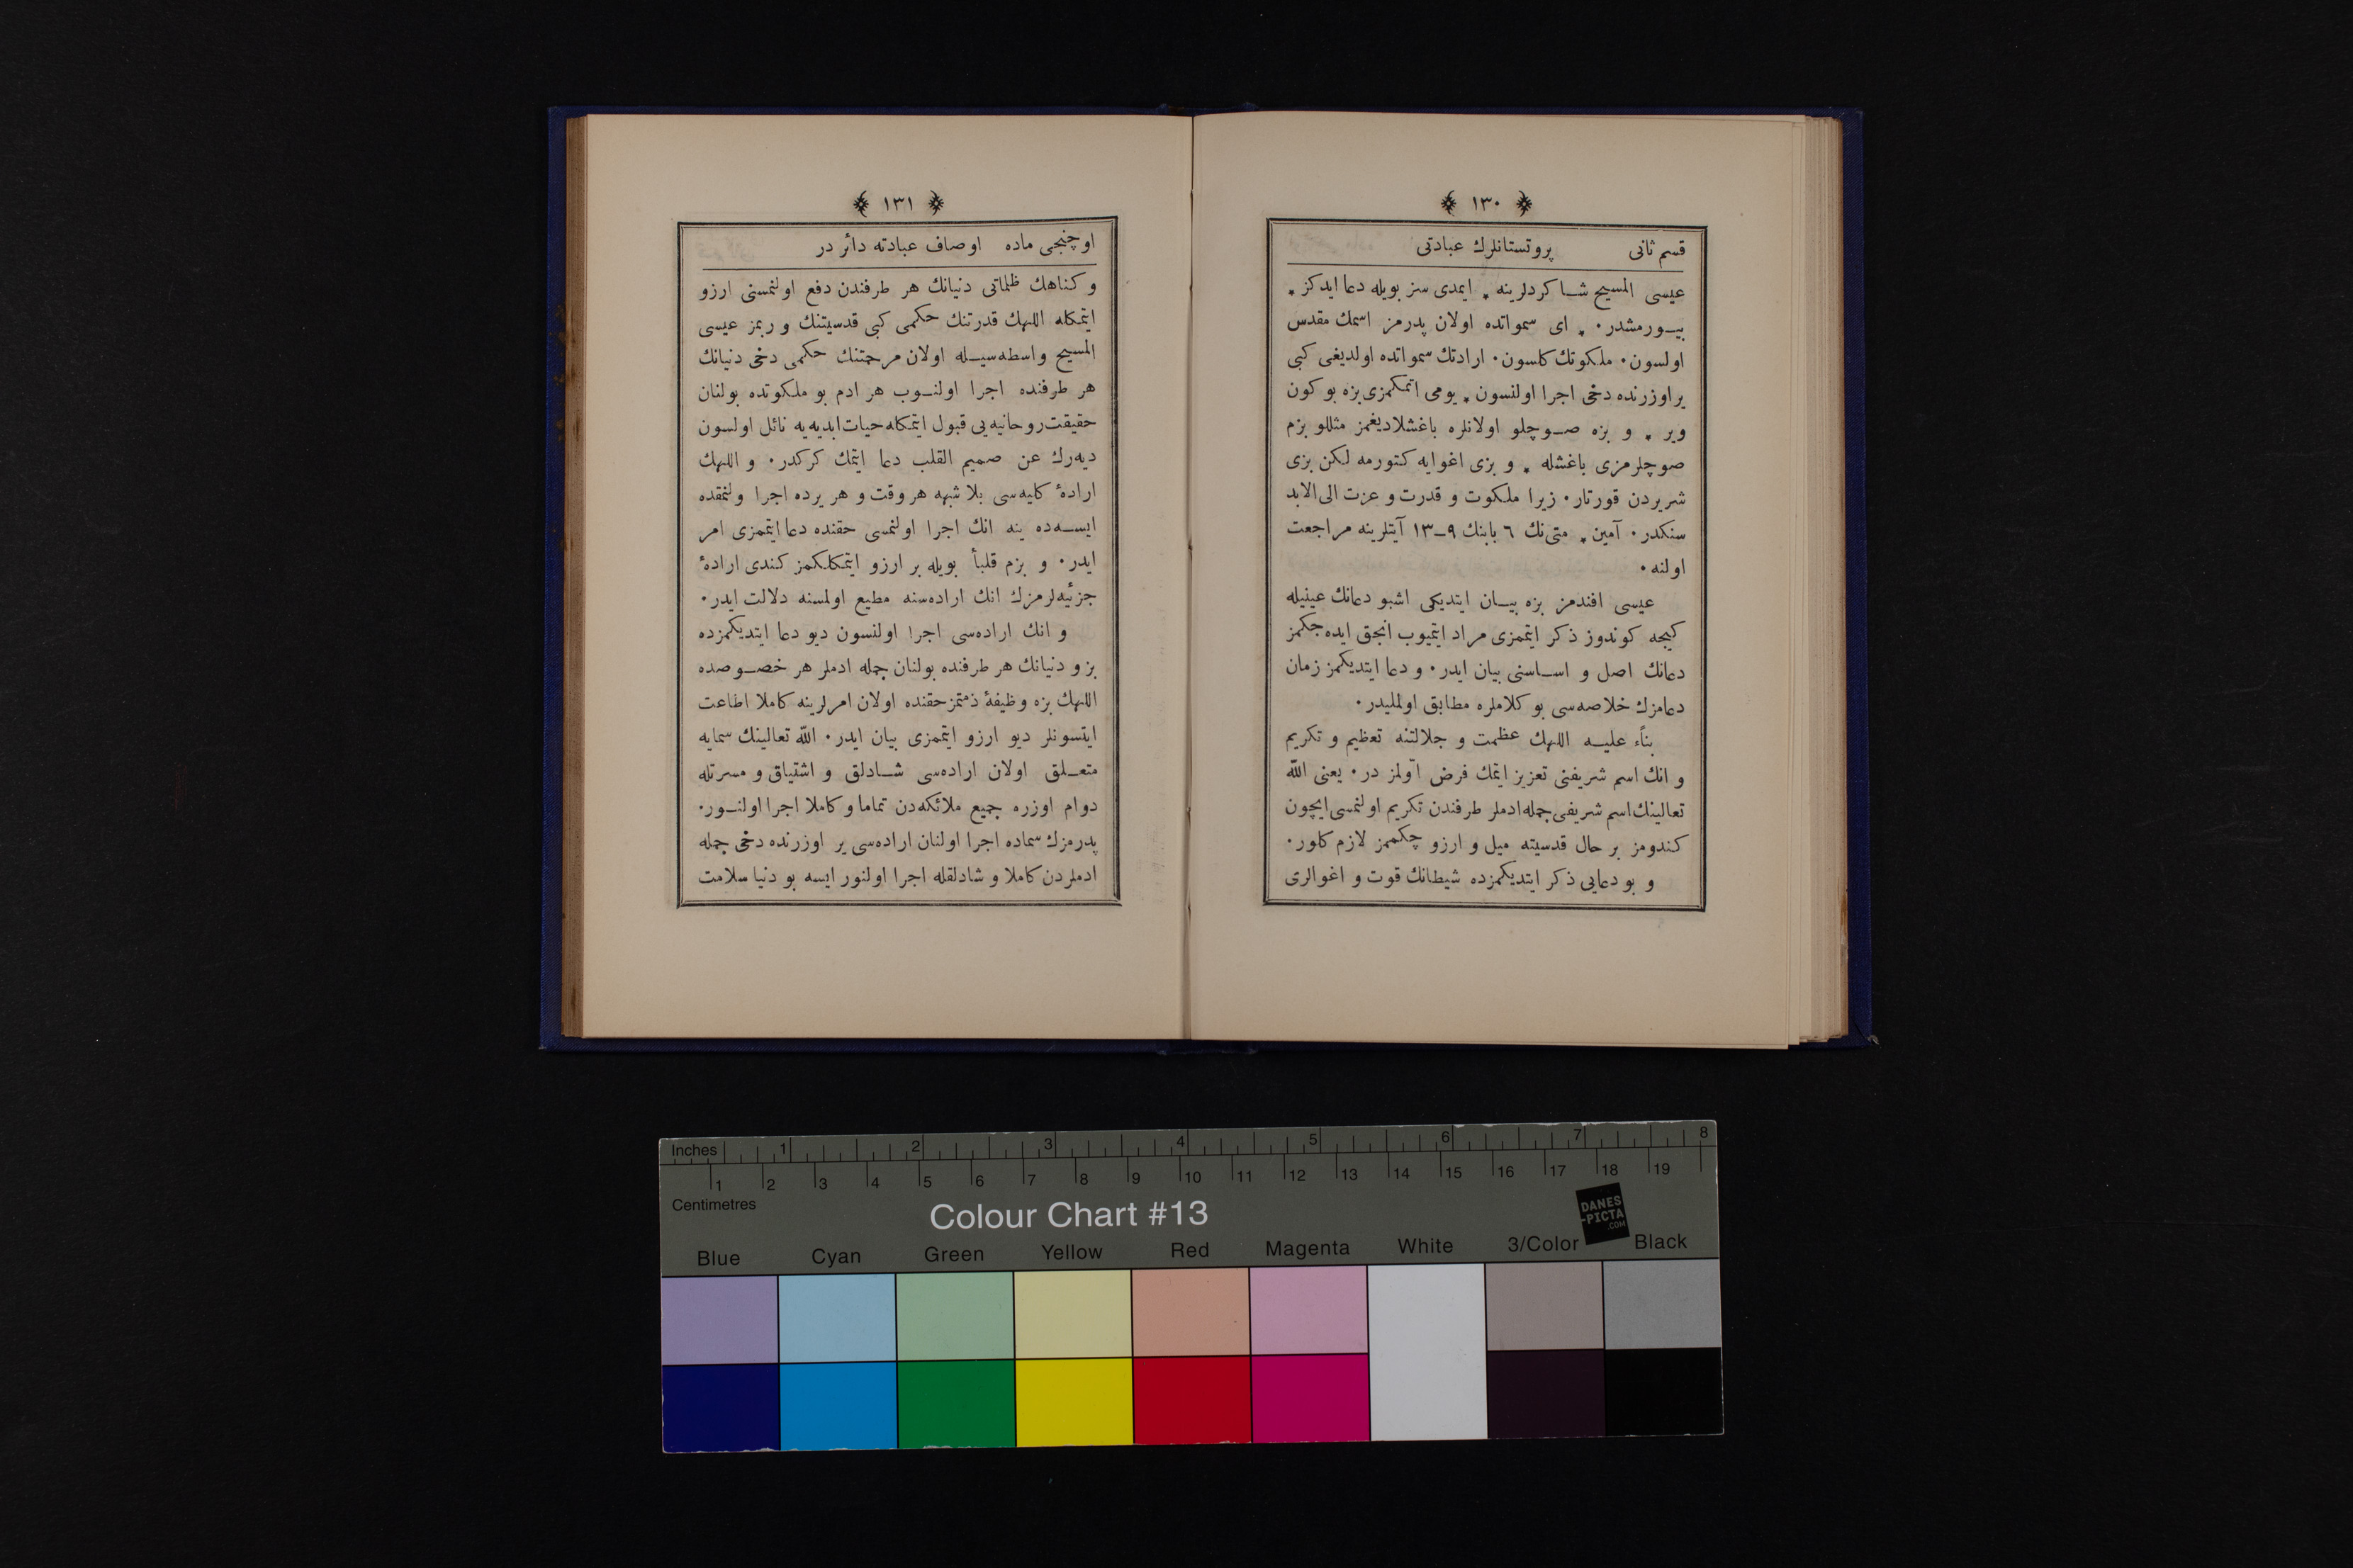 ١٣٠
قسم ثانی پروتستانلرك عبادتی
عیسی المسیح شاكردلرینه ٭ ایمدی سز بویله دعا ایدكز ٭
بیورمشدر ٠ ٭ ای سمواتده اولان پدرمز اسمك مقدس
اولسون ٠ ملكوتك كلسون ٠ ارادتك سمواتده اولدیغی كبی
یر اوزرنده دخی اجرا اولنسون ٭ یومی اتمكمزی بزه بو كون
ویر ٭ و بزه صوچلو اولانلره باغشلادیغمز مثللو بزم
صوچلرمزی باغشله ٭ و بزی اغوایه كتورمه لكن بزی
شریردن قورتار ٠ زیرا ملكوت و قدرت و عزت الی الابد
سنكدر ٠ آمین ٭ متی‌نك ٦ بابنك ٩–١٣ آیتلرینه مراجعت
اولنه ٠
عیسی افندمز بزه بیان ایتدیكی اشبو دعانك عینیله
كیجه كوندوز ذكر ایتممزی مراد ایتمیوب انجق ایده‌جكمز
دعانك اصل و اساسنی بیان ایدر ٠ و دعا ایتدیكمز زمان
دعامزك خلاصه‌سی بو كلاملره مطابق اولملیدر ٠
بنأء علیه اللهك عظمت و جلالتنه تعظیم و تكریم
و انك اسم شریفنی تعزیز ایتمك فرض اولمز در ٠ یعنی الله
تعالینك اسم شریفی جمله ادملر طرفندن تكریم اولنمسی ایچون
كندومز بر حال قدسیته میل و ارزو چكممز لازم كلور ٠
و بو دعایی ذكر ایتدیكمزده شیطانك قوت و اغوالری
١٣١
اوچنجی ماده اوصاف عبادته دائر در
و كناهك ظلماتی دنیانك هر طرفندن دفع اولنمسنی ارزو
ایتمكله اللهك قدرتنك حكمی كبی قدسیتنك و ربمز عیسی
المسیح واسطه‌سیله اولان مرحمتنك حكمی دخی دنیانك
هر طرفنده اجرا اولنوب هر ادم بو ملكوتده بولنان
حقیقت روحانیه‌یی قبول ایتمكله حیات ابدیه‌یه نائل اولسون
دیه‌رك عن صمیم القلب دعا ایتمك كركدر ٠ و اللهك
ارادهٔ كلیه‌سی بلا شبهه هر وقت و هر یرده اجرا ولنمقده
ایسه‌ده ینه انك اجرا اولنمسی حقنده دعا ایتممزی امر
ایدر ٠ و بزم قلبأ بویله بر ارزو ایتمكلكمز كندی ارادهٔ
جزئیه‌لرمزك انك اراده‌سنه مطیع اولمسنه دلالت ایدر ٠
و انك اراده‌سی اجرا اولنسون دیو دعا ایتدیكمزده
بز و دنیانك هر طرفنده بولنان جمله ادملر هر خصوصده
اللهك بزه وظیفهٔ ذمتمز حقنده اولان امرلرینه كاملا اطاعت
ایتسونلر دیو ارزو ایتممزی بیان ایدر ٠ الله تعالینك سمایه
متعلق اولان اراده‌سی شادلق و اشتیاق و مسرتله
دوام اوزره جمیع ملائكه‌دن تماما و كاملا اجرا اولنور ٠
پدرمزك سماده اجرا اولنان اراده‌سی یر اوزرنده دخی جمله
ادملردن كاملا و شادلقله اجرا اولنور ایسه بو دنیا سلامت
Inches 1 2 3 4 5 6 7 8
1 2 3 4 5 6 7 8 9 10 11 12 13 14 15 16 17 18 19
Centimetres
Colour Chart #13
DANES
-PICTA
.COM
Blue Cyan Green Yellow Red Magenta White 3/Color Black